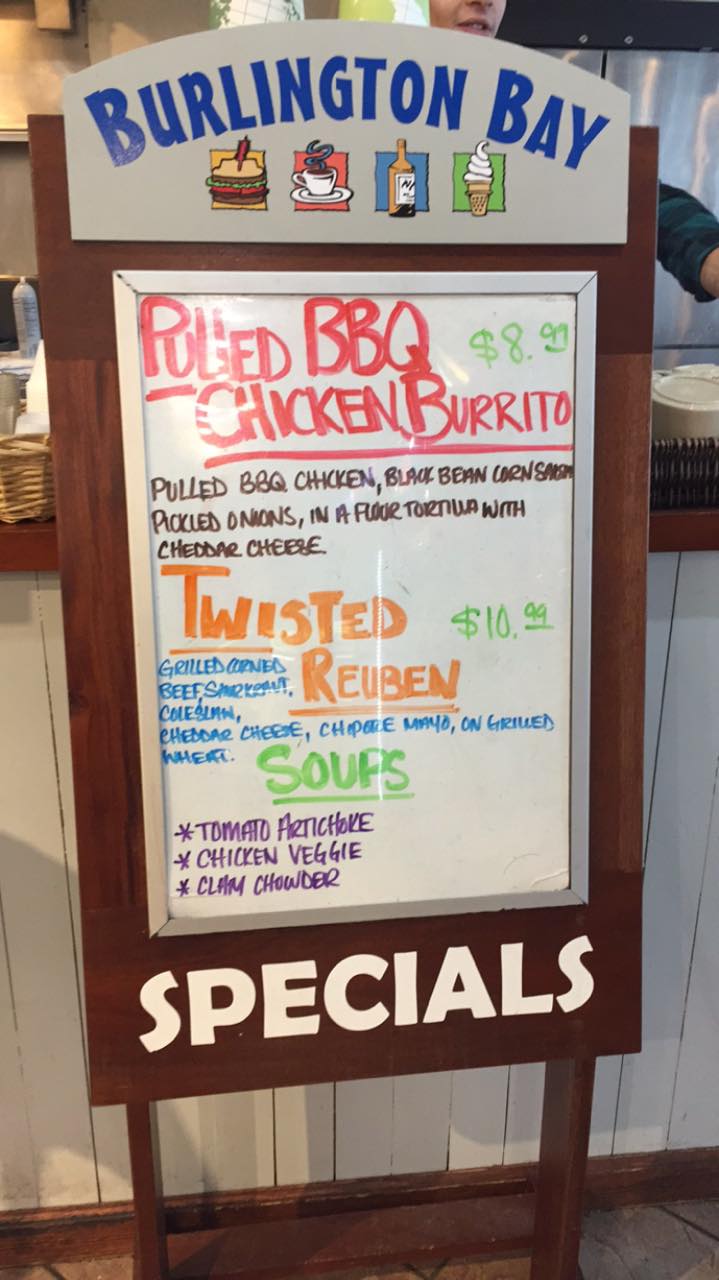 BURLINGTON BAY
PULLED BBQ $8.99
CHICKEN BURRITO
PULLED BBQ CHICKEN, BLACK BEAN CORN SALSA
PICKLED ONIONS, IN A FLOUR TORTILLA WITH
CHEDDAR CHEESE.
TWISTED $10.99
REUBEN
GRILLED CORNED
BEEF,
COLESLAW,
CHEDDAR CHEESE, CHIPOTLE MAYO, ON GRILLED
WHEAT.
SOUPS
* TOMATO ARTICHOKE
* CHICKEN VEGGIE
* CLAM CHOWDER
SPECIALS